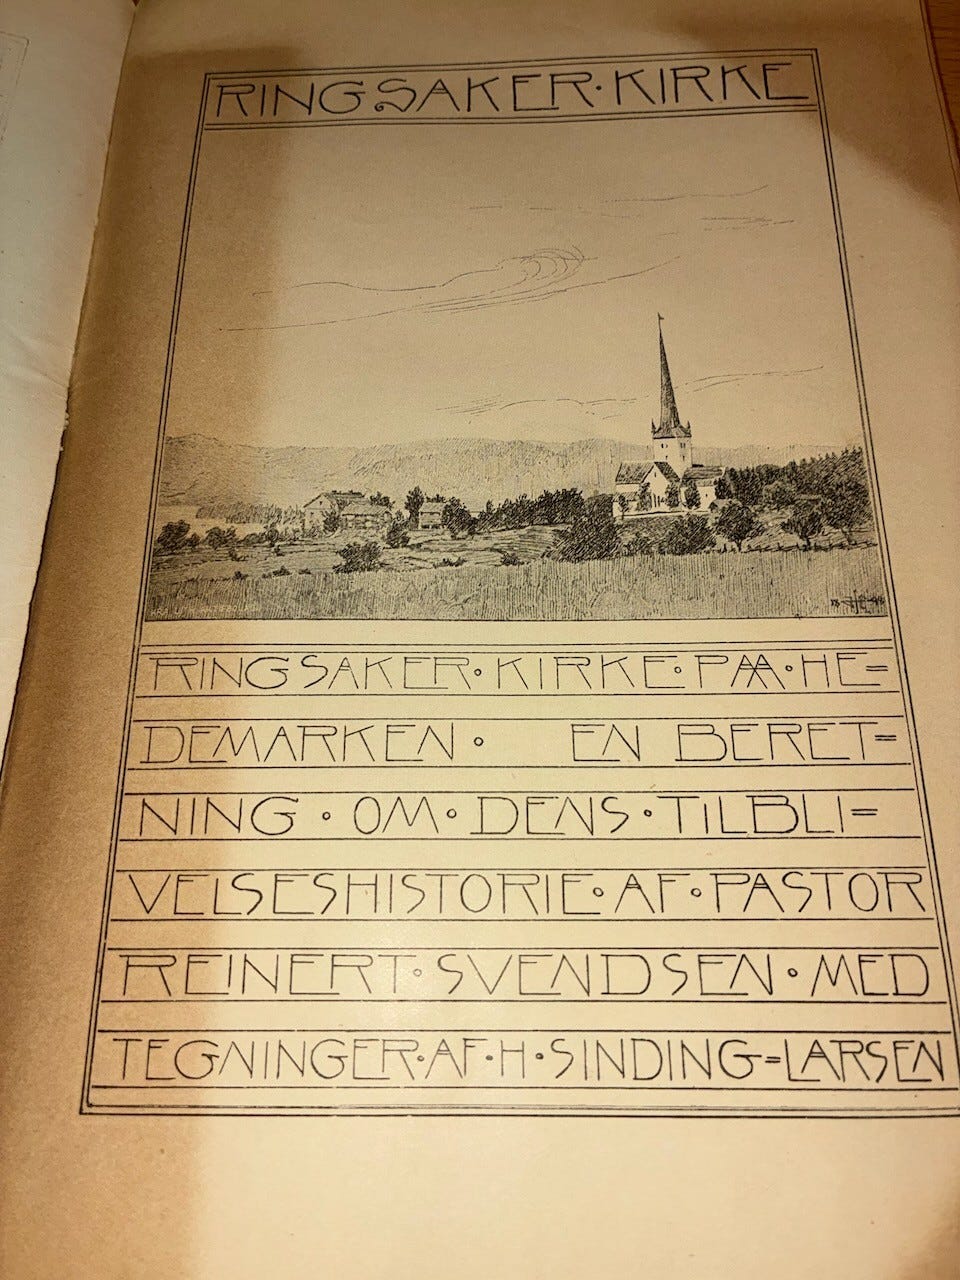 RINGSAKER · KIRKE
RINGSAKER · KIRKE · PAA · HE=
DEMARKEN · EN BERET=
NING · OM · DENS · TILBLI=
VELSESHISTORIE · AF · PASTOR
REINERT · SVENDSEN · MED
TEGNINGER · AF · H · SINDING=LARSEN